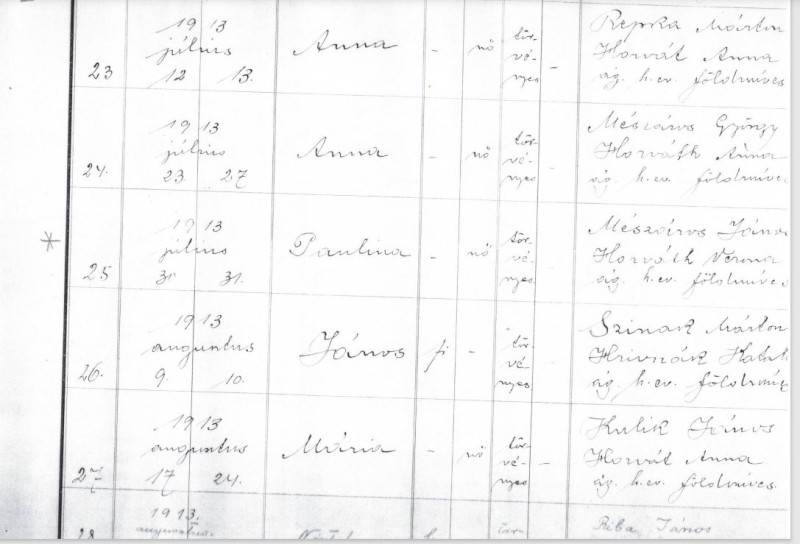 1913 Repka Márton
július Anna - nő tör- Horvát Anna
23 12 13. vé- nyes - ág. h. ev. földmíves
1913 Mészáros György
július Anna - nő tör- Horváth Anna
24. 23 27 vé- nyes - ág. h. ev. földmíves
1913 Mészáros János
július Paulina - nő tör- Horváth Verona
25 31. vé- nyes - ág. h. ev. földmíves
1913 Szinak Márton
augusztus János fi - tör- Hrivnák
26. 9. 10. vé nyes - ág. h. ev.
1913 Kulik János
augusztus Mária - nő tör- Horvát Anna
27 17 24. vé- nyes - ág. h. ev. földmíves
1913. Riba János
28